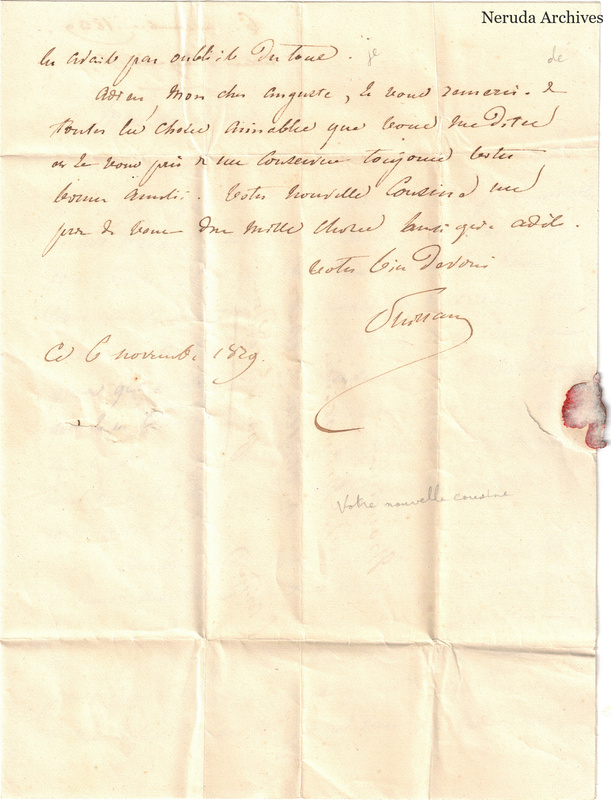 Neruda Archives
les avait pas oublié du tout. je
Adieu, mon cher auguste, je vous remercie de de
toutes les choses aimables que vous me dites
et je vous prie de me conserver toujours votre
bonne amitié. Votre nouvelle Cousine me
prie de vous dire mille choses
votre bien dévoué
Ce 6 novembre 1829.
Votre nouvelle cousine